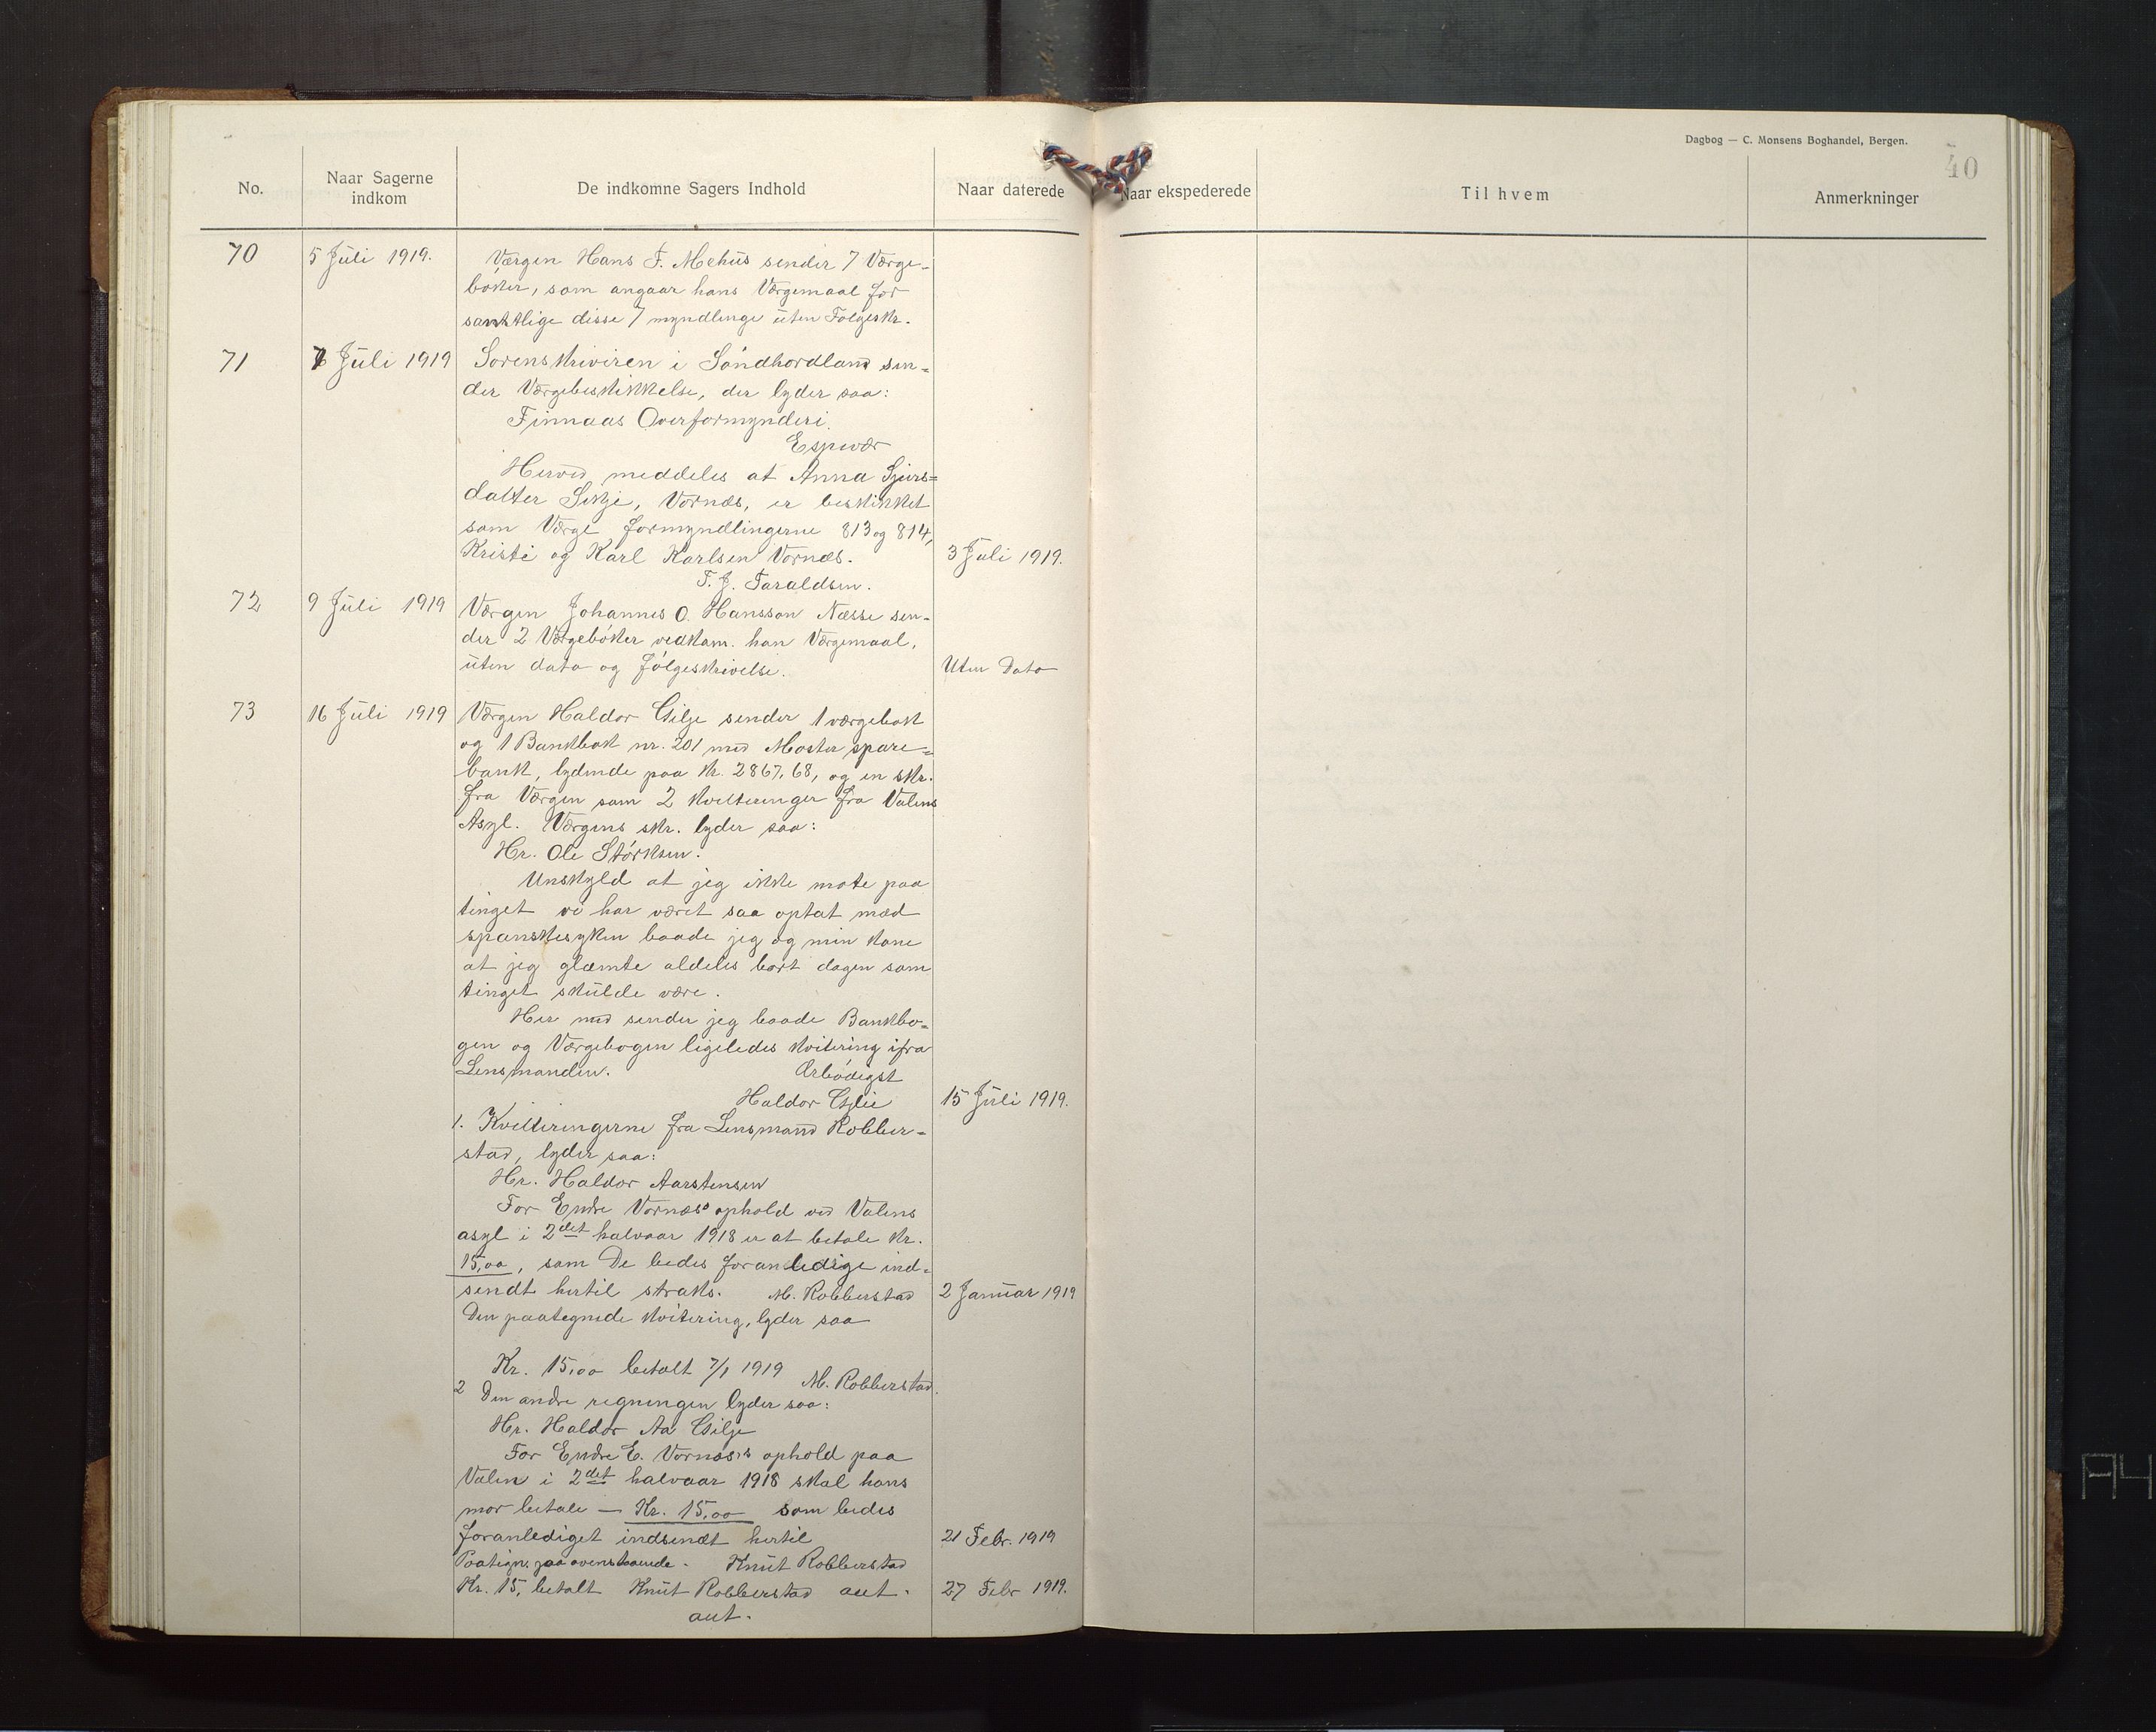 Dagbog — C. Monsens Boghandel, Bergen.
40
No.
Naar Sagerne indkom
De indkomne Sagers Indhold
Naar daterede
Naar ekspederede
Til hvem
Anmerkninger
70 5 Juli 1919. Værgen Hans F. Mehus sender 7 Værge-
bøker, som angaar hans Værgemaal for
samtlige disse 7 myndlinge uten Følgeskr.
71 7 Juli 1919 Sorenskriveren i Søndhordland sen-
der Værgebeskikkelse, der lyder saa:
Finnaas Overformynderi.
Espevær
Herved meddeles at Anna Sjurs-
datter Selje, Vornæs, er beskikket
som Værge formyndlingerne 813 og 814,
Kristi og Karl Karlsen Vornæs. 3 Juli 1919.
T. J. Taraldsen.
72 9 Juli 1919 Værgen Johannes O. Hansson Næsse sen-
der 2 Værgebøker vedkom. han Værgemaal,
uten dato og følgeskrivelse. Uten Dato
73 16 Juli 1919 Værgen Haldor Gilje sender 1 værgebok
og 1 Bankbok nr. 201 med Moster spare-
bank, lydende paa Kr. 2867,68, og en skr.
fra Værgen som 2 Kvitteringer fra Valens
Asyl. Værgens skr. lyder saa:
Hr. Ole Størksen.
Unskyld at jeg ikke møte paa
tinget vi har været saa optat med
spanskesyken baade jeg og min kone
at jeg glæmte aldeles bort dagen som
tinget skulde være.
Her med sender jeg baade Bankbo-
gen og Værgebogen ligeledes kvitering ifra
Lensmanden. Ærbødigst
Haldor Gilje 15 Juli 1919.
1. Kvitteringerne fra Lensmand Robber-
stad, lyder saa:
Hr. Haldor Aarstensen
For Endre Vornæs' ophold ved Valens
asyl i 2det halvaar 1918 er at betale kr.
15,00, som De bedes foranledige ind-
sendt hertil straks. M. Robberstad 2 Januar 1919
Den paategnede kvitering, lyder saa
Kr. 15,00 betalt 7/1 1919 M. Robberstad.
2 Den andre regningen lyder saa:
Hr. Haldor Aa Gilje
For Endre E. Vornæs's ophold paa
Valen i 2det halvaar 1918 skal hans
mor betale — Kr. 15,00 som bedes
foranlediget indsendt hertil 21 Febr. 1919
Paategn. paa ovenstaaende. Knut Robberstad
Kr. 15, betalt Knut Robberstad aut. 27 Febr 1919.
aut.